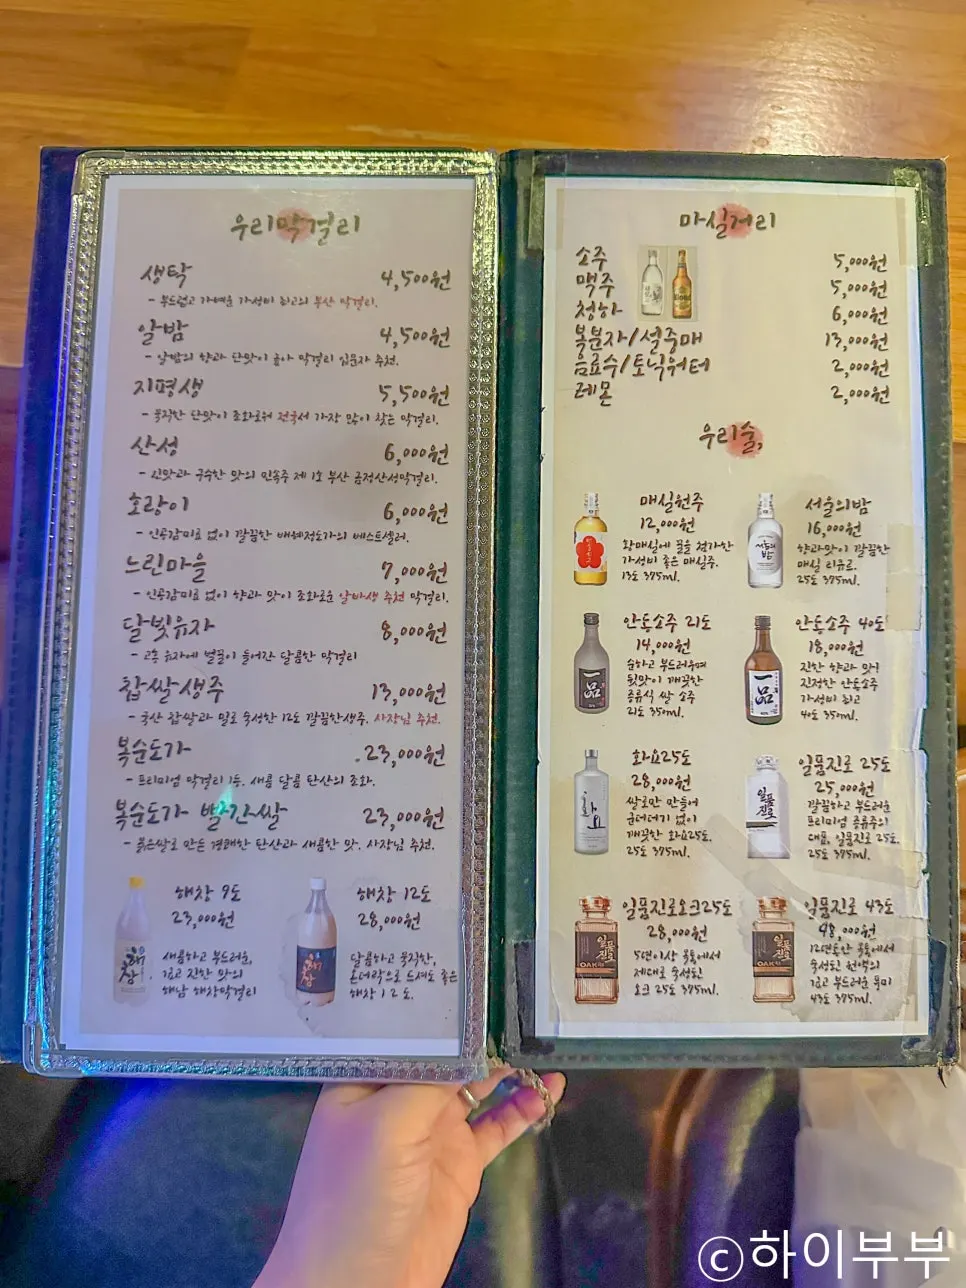 우리막걸리
생탁 4,500원
- 부드럽고 가벼운 가성비 최고의 부산 막걸리.
알밤 4,500원
- 알밤의 향과 단맛이 좋아 막걸리 입문자 추천.
지평생 5,500원
- 묵직한 단맛이 조화로워 전국서 가장 많이 찾는 막걸리.
산성 6,000원
- 신맛과 구수한 맛의 민속주 제 1호 부산 금정산성막걸리.
호랑이 6,000원
- 인공감미료 없이 깔끔한 배혜정도가의 베스트셀러.
느린마을 7,000원
- 인공감미료 없이 향과 맛이 조화로운 알바생 추천 막걸리.
달빛유자 8,000원
- 고흥 유자에 벌꿀이 들어간 달콤한 막걸리
찹쌀생주 13,000원
- 국산 찹쌀과 밀로 숙성한 12도 깔끔한생주. 사장님 추천.
복순도가 23,000원
- 프리미엄 막걸리 1등. 새콤 달콤 탄산의 조화.
복순도가 빨간쌀 23,000원
- 붉은쌀로 만든 경쾌한 탄산과 새콤한 맛. 사장님 추천.
해창 9도
23,000원
새콤하고 부드러운,
깊고 진한 맛의
해남 해창막걸리
해창 12도
28,000원
달콤하고 묵직한,
온더락으로 드셔도 좋은
해창 12도.
마실거리
소주 5,000원
맥주 5,000원
청하 6,000원
복분자/설중매 13,000원
음료수/토닉워터 2,000원
레몬 2,000원
우리술,
매실원주
12,000원
황매실에 꿀을 첨가한
가성비 좋은 매실주.
13도 375ml.
서울의밤
16,000원
향과맛이 깔끔한
매실 리큐르.
25도 375ml.
안동소주 21도
14,000원
순하고 부드러우며
뒷맛이 깨끗한
증류식 쌀 소주
21도 350ml.
안동소주 40도
18,000원
진한 향과 맛!
진정한 안동소주
가성비 최고
40도 350ml.
화요25도
28,000원
쌀로만 만들어
군더더기 없이
깨끗한 화요25도.
25도 375ml.
일품진로 25도
25,000원
깔끔하고 부드러운
프리미엄 증류주의
대표, 일품진로 25도.
25도 375ml.
일품진로오크25도
28,000원
5년이상 목통에서
제대로 숙성된
오크 25도 375ml.
일품진로 43도
98,000원
12년동안 목통에서
숙성된 원액의
깊고 부드러운 풍미
43도 375ml.
ⓒ하이부부